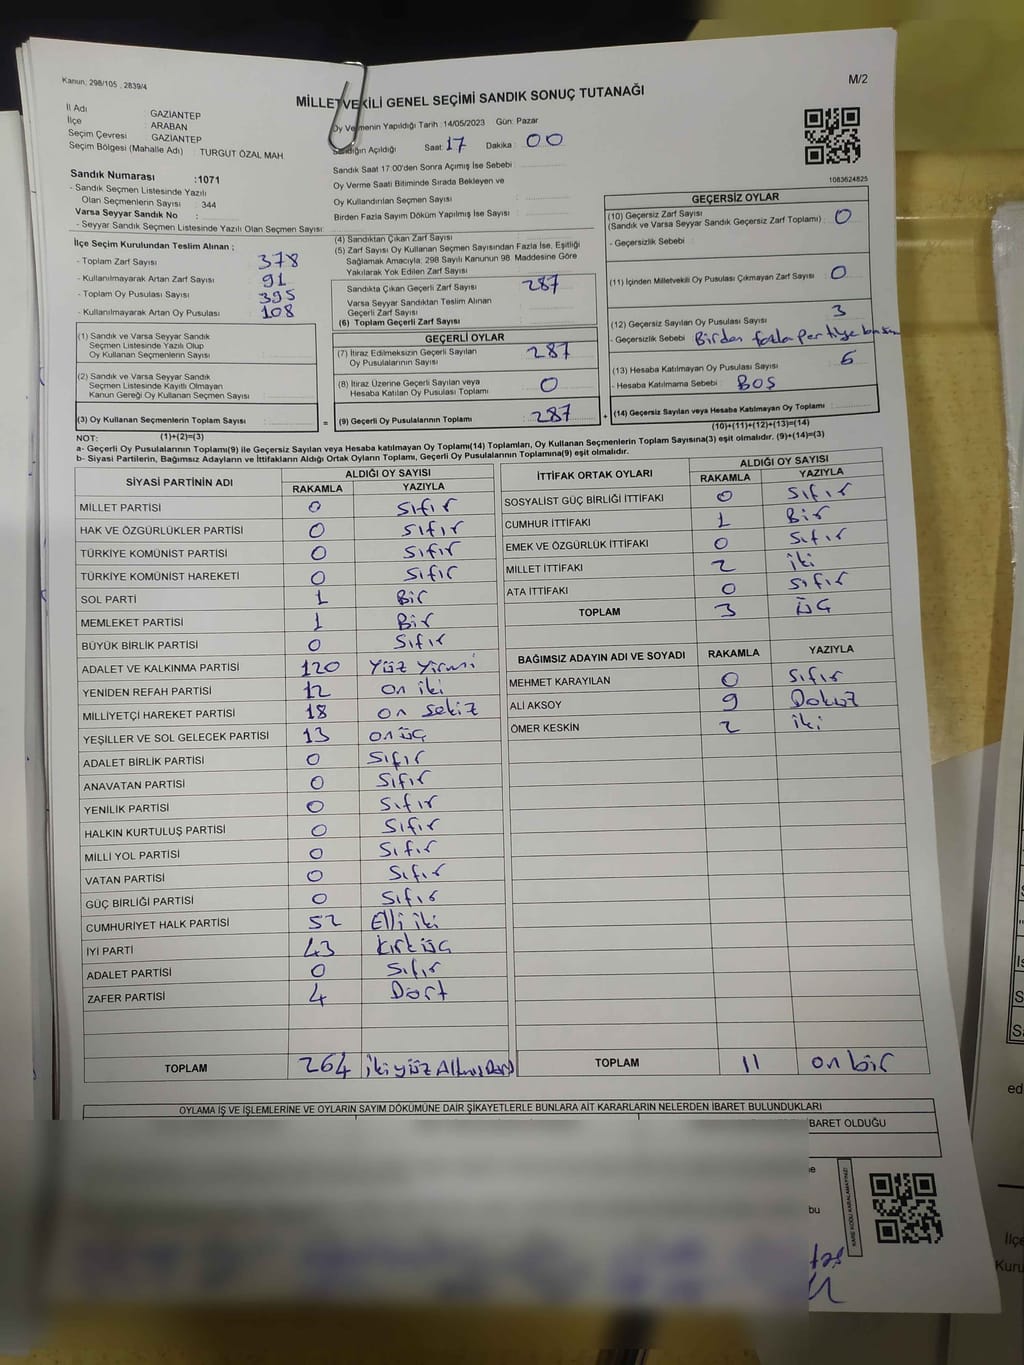 Kanun: 298/105 , 2839/4
M/2
MİLLETVEKİLİ GENEL SEÇİMİ SANDIK SONUÇ TUTANAĞI
İl Adı GAZİANTEP
İlçe ARABAN
Seçim Çevresi GAZİANTEP
Seçim Bölgesi (Mahalle Adı) : TURGUT ÖZAL MAH
Oy Vermenin Yapıldığı Tarih : 14/05/2023 Gün: Pazar
Sandığın Açıldığı Saat: 17 Dakika : 00
Sandık Saat 17:00'den Sonra Açımış İse Sebebi :
Oy Verme Saati Bitiminde Sırada Bekleyen ve
Oy Kullandırılan Seçmen Sayısı :
Birden Fazla Sayım Döküm Yapılmış İse Sayısı :
1083624825
Sandık Numarası :1071
- Sandık Seçmen Listesinde Yazılı
Olan Seçmenlerin Sayısı : 344
Varsa Seyyar Sandık No :
- Seyyar Sandık Seçmen Listesinde Yazılı Olan Seçmen Sayısı:
İlçe Seçim Kurulundan Teslim Alınan ;
- Toplam Zarf Sayısı : 378
- Kullanılmayarak Artan Zarf Sayısı : 91
- Toplam Oy Pusulası Sayısı : 395
- Kullanılmayarak Artan Oy Pusulası : 108
(1) Sandık ve Varsa Seyyar Sandık
Seçmen Listesinde Yazılı Olup
Oy Kullanan Seçmenlerin Sayısı :
(2) Sandık ve Varsa Seyyar Sandık
Seçmen Listesinde Kayıtlı Olmayan
Kanun Gereği Oy Kullanan Seçmen Sayısı :
(3) Oy Kullanan Seçmenlerin Toplam Sayısı :
(1)+(2)=(3)
(4) Sandıktan Çıkan Zarf Sayısı :
(5) Zarf Sayısı Oy Kullanan Seçmen Sayısından Fazla İse, Eşitliği
Sağlamak Amacıyla; 298 Sayılı Kanunun 98. Maddesine Göre
Yakılarak Yok Edilen Zarf Sayısı :
Sandıkta Çıkan Geçerli Zarf Sayısı : 287
Varsa Seyyar Sandıktan Teslim Alınan
Geçerli Zarf Sayısı :
(6) Toplam Geçerli Zarf Sayısı :
GEÇERLİ OYLAR
(7) İtiraz Edilmeksizin Geçerli Sayılan
Oy Pusulalarının Sayısı : 287
(8) İtiraz Üzerine Geçerli Sayılan veya
Hesaba Katılan Oy Pusulaları Toplamı : 0
= (9) Geçerli Oy Pusulalarının Toplamı : 287 +
GEÇERSİZ OYLAR
(10) Geçersiz Zarf Sayısı
(Sandık ve Varsa Seyyar Sandık Geçersiz Zarf Toplamı) : 0
- Geçersizlik Sebebi :
(11) İçinden Milletvekili Oy Pusulası Çıkmayan Zarf Sayısı : 0
(12) Geçersiz Sayılan Oy Pusulası Sayısı : 3
- Geçersizlik Sebebi : Birden fazla Partiye basılan
(13) Hesaba Katılmayan Oy Pusulası Sayısı : 6
- Hesaba Katılmama Sebebi : BOŞ
(14) Geçersiz Sayılan veya Hesaba Katılmayan Oy Toplamı :
(10)+(11)+(12)+(13)=(14)
NOT:
a- Geçerli Oy Pusulalarının Toplamı(9) ile Geçersiz Sayılan veya Hesaba katılmayan Oy Toplamı(14) Toplamları, Oy Kullanan Seçmenlerin Toplam Sayısına(3) eşit olmalıdır. (9)+(14)=(3)
b- Siyasi Partilerin, Bağımsız Adayların ve İttifakların Aldığı Ortak Oyların Toplamı, Geçerli Oy Pusulalarının Toplamına(9) eşit olmalıdır.
SİYASİ PARTİNİN ADI ALDIĞI OY SAYISI
RAKAMLA YAZIYLA
MİLLET PARTİSİ 0 Sıfır
HAK VE ÖZGÜRLÜKLER PARTİSİ 0 Sıfır
TÜRKİYE KOMÜNİST PARTİSİ 0 Sıfır
TÜRKİYE KOMÜNİST HAREKETİ 0 Sıfır
SOL PARTİ 1 Bir
MEMLEKET PARTİSİ 1 Bir
BÜYÜK BİRLİK PARTİSİ 0 Sıfır
ADALET VE KALKINMA PARTİSİ 120 Yüz Yirmi
YENİDEN REFAH PARTİSİ 12 on iki
MİLLİYETÇİ HAREKET PARTİSİ 18 on sekiz
YEŞİLLER VE SOL GELECEK PARTİSİ 13 on üç
ADALET BİRLİK PARTİSİ 0 Sıfır
ANAVATAN PARTİSİ 0 Sıfır
YENİLİK PARTİSİ 0 Sıfır
HALKIN KURTULUŞ PARTİSİ 0 Sıfır
MİLLİ YOL PARTİSİ 0 Sıfır
VATAN PARTİSİ 0 Sıfır
GÜÇ BİRLİĞİ PARTİSİ 0 Sıfır
CUMHURİYET HALK PARTİSİ 52 Elli iki
İYİ PARTİ 43 Kırk üç
ADALET PARTİSİ 0 Sıfır
ZAFER PARTİSİ 4 Dört
TOPLAM 264 iki yüz Altmış Dört
İTTİFAK ORTAK OYLARI ALDIĞI OY SAYISI
RAKAMLA YAZIYLA
SOSYALİST GÜÇ BİRLİĞİ İTTİFAKI 0 Sıfır
CUMHUR İTTİFAKI 1 Bir
EMEK VE ÖZGÜRLÜK İTTİFAKI 0 Sıfır
MİLLET İTTİFAKI 2 iki
ATA İTTİFAKI 0 Sıfır
TOPLAM 3 üç
BAĞIMSIZ ADAYIN ADI VE SOYADI RAKAMLA YAZIYLA
MEHMET KARAYILAN 0 Sıfır
ALİ AKSOY 9 Dokuz
ÖMER KESKİN 2 iki
TOPLAM 11 on bir
OYLAMA İŞ VE İŞLEMLERİNE VE OYLARIN SAYIM DÖKÜMÜNE DAİR ŞİKAYETLERLE BUNLARA AİT KARARLARIN NELERDEN İBARET BULUNDUKLARI
BARET OLDUĞU
KARE KODU KARALAMAYINIZ!
bu